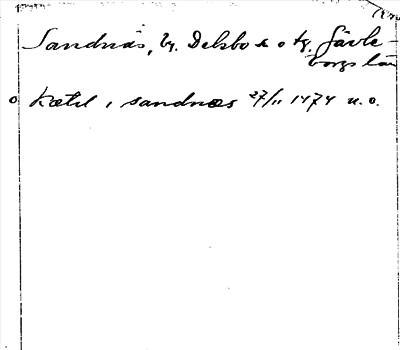 Sandnäs, by, Delsbo sn o tg, Gävle-
borgs län
o Kætil i sandnæs 27/11 1474 u. o.